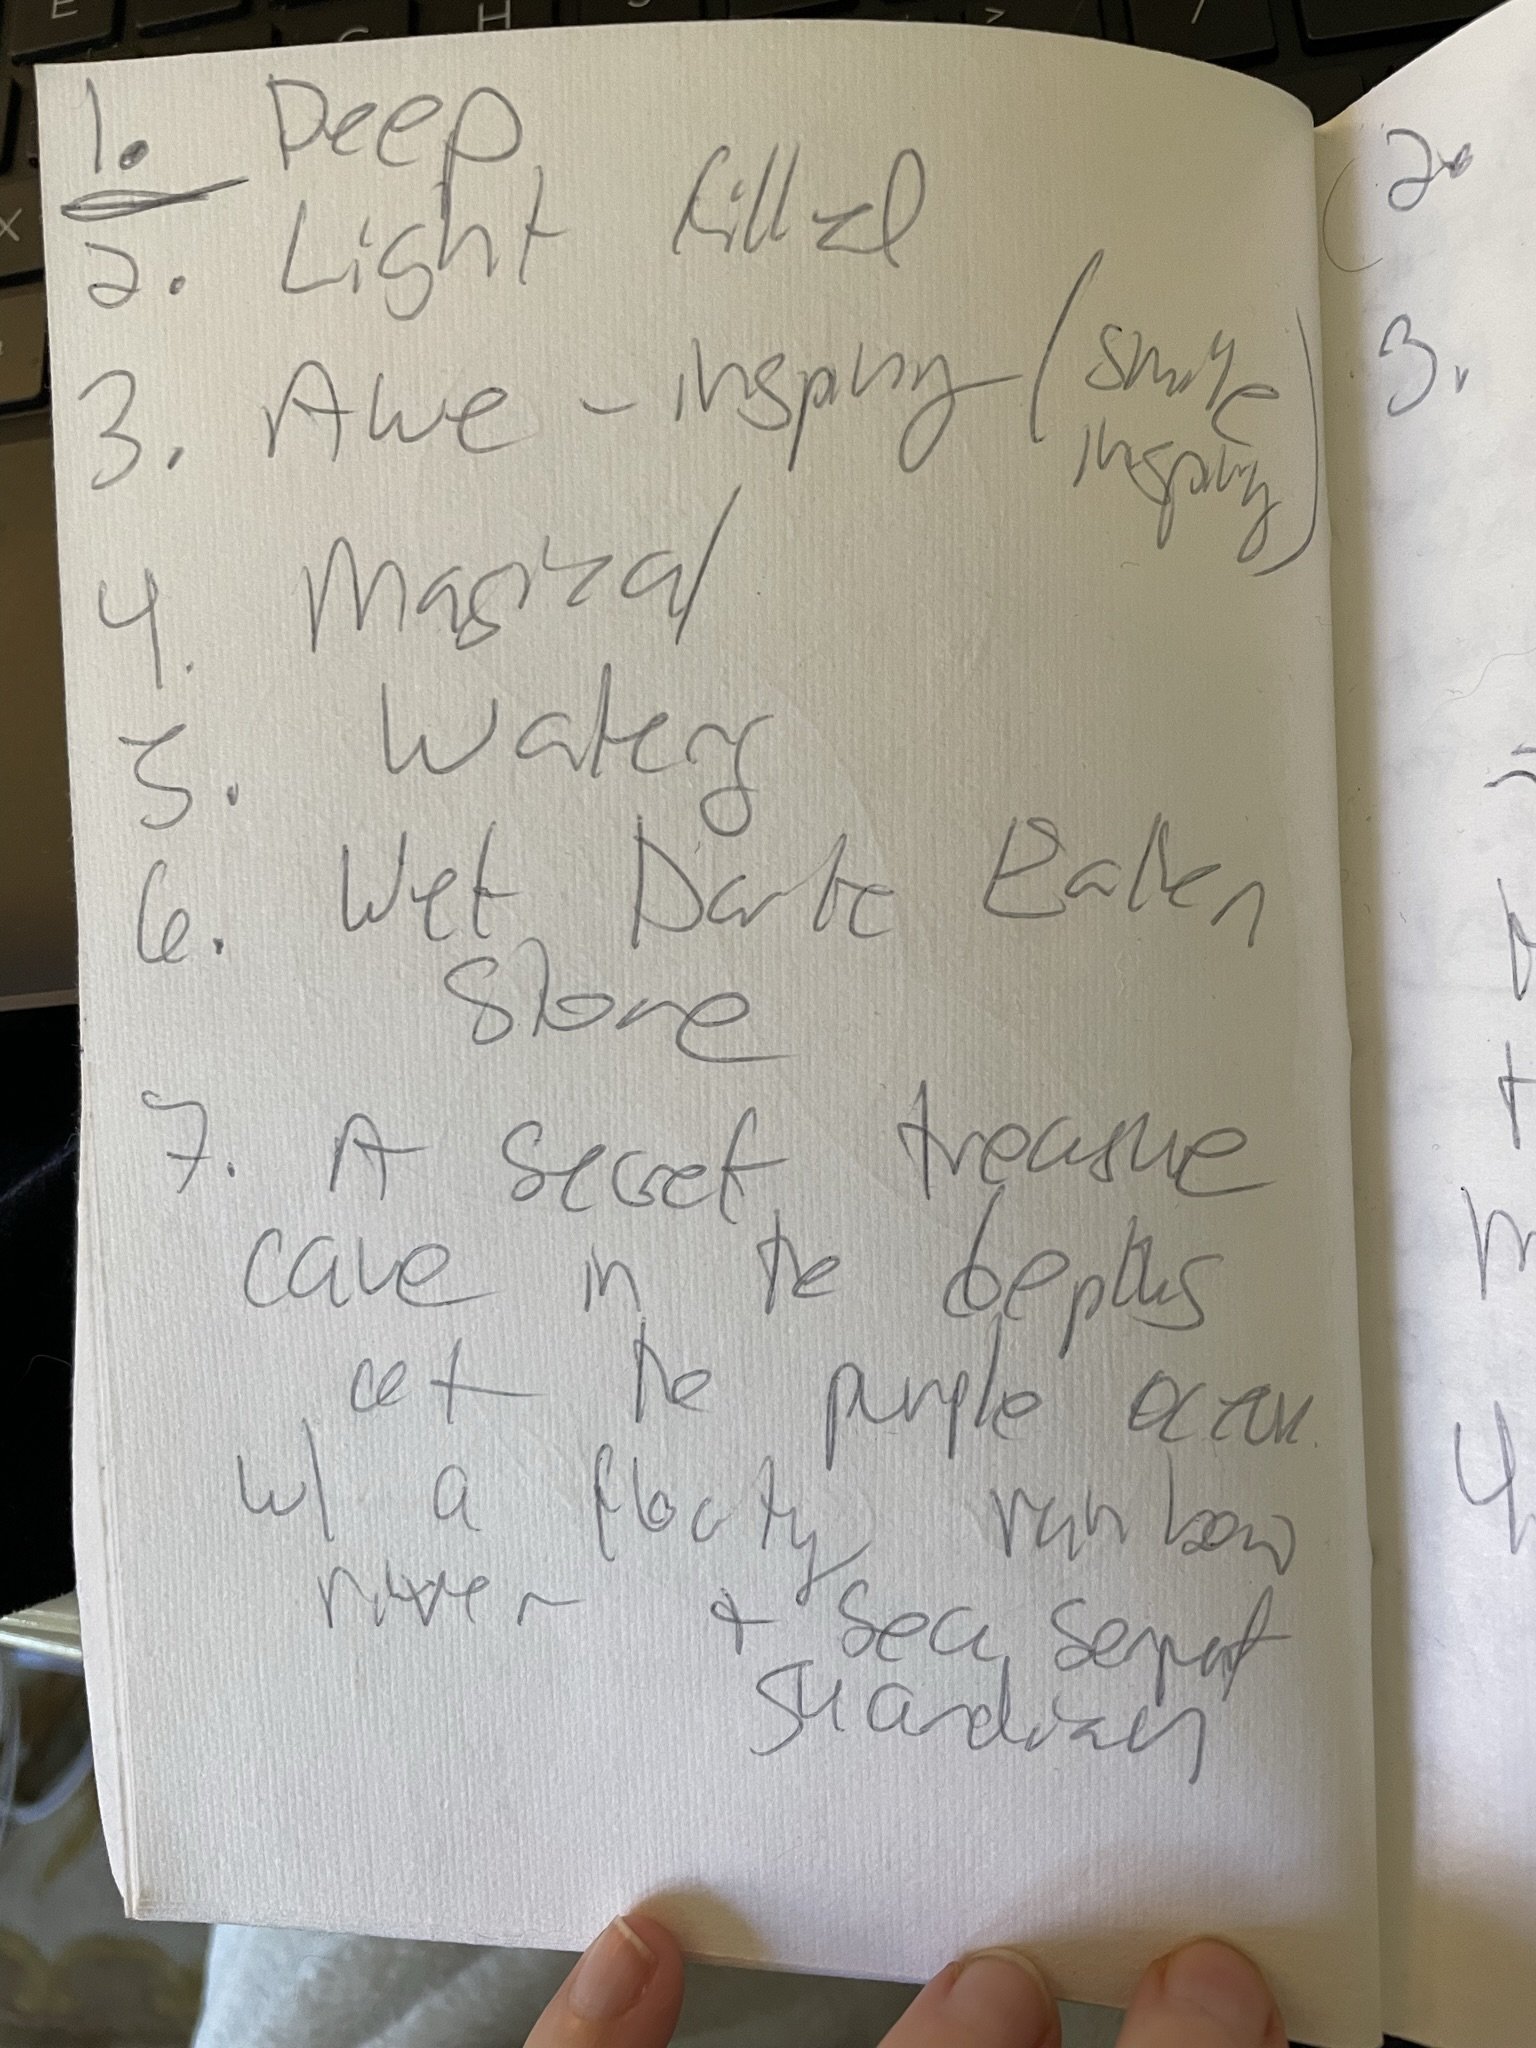 1. Deep
2. Light filled
3. Awe - inspiring (smile
inspiring)
4. Magical
5. Watery
6. Wet Dark
Stone
7. A secret treasure
cave in the depths
of the purple ocean
w/ a floaty rainbow
river + sea serpent
guardian
2.
3.
4